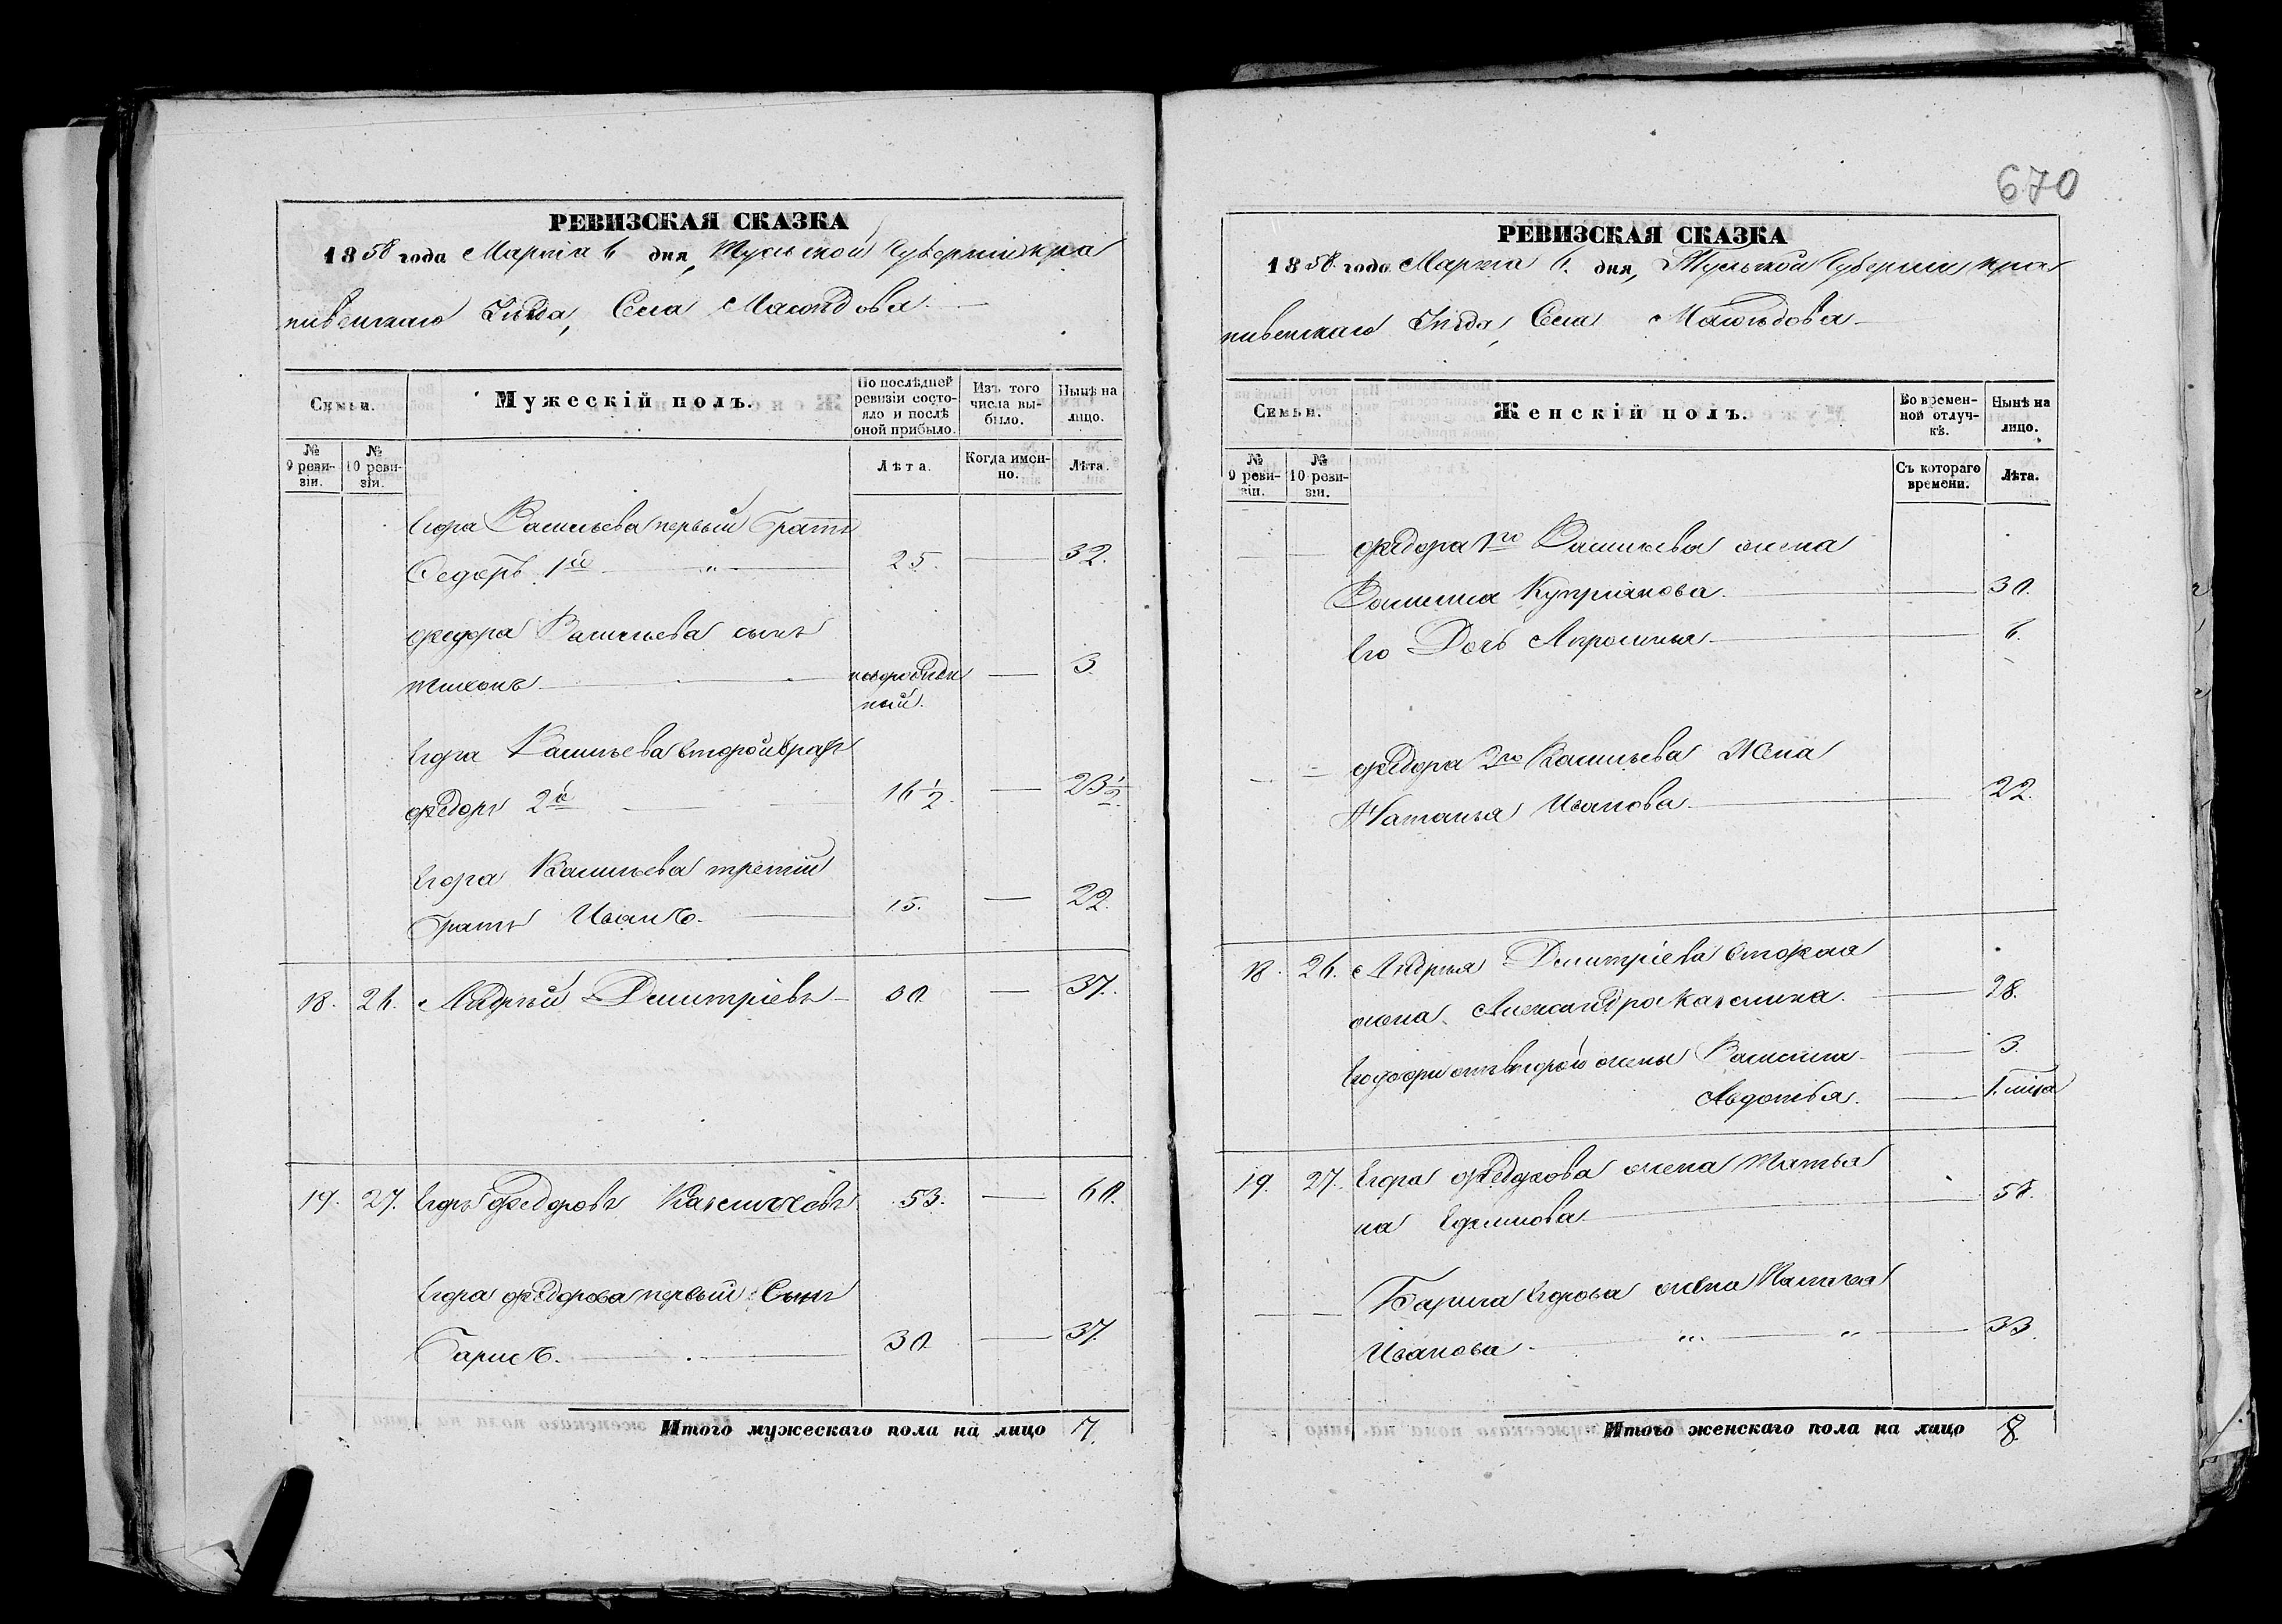 РЕВИЗСКАЯ СКАЗКА
1858 года Марта 6 дня, Тульской Губерніи Кра
пивенскаго Уѣзда, Села
Семьи.
Мужескій полъ.
По послѣдней ревизіи состояло и послѣ оной прибыло.
Изъ того числа выбыло.
Нынѣ на лицо.
№ 9 ревизіи.
№ 10 ревизіи.
Лѣта.
Когда именно.
Лѣта.
Егора Васильева первый братъ
Федоръ 1й 25. 32.
Федора Васильева сынъ
Тихонъ новорожден 3.
ный.
Егора Васильева второй братъ
Федоръ 2й 16 1/2. 23 1/2
Егора Васильева третій
братъ Иванъ. 15. 22.
18. 26. Андрей Дмитріевъ 30. 37.
19. 27. Егоръ Федоровъ 53. 60.
Егора Федорова первый Сынъ
Барисъ. 30 37.
Итого мужескаго пола на лицо 7.
670
РЕВИЗСКАЯ СКАЗКА
1858 года Марта 6. дня, Тульской Губерніи Кра
пивенскаго Уѣзда, Села
Семьи.
Женскій полъ.
Во временной отлучкѣ.
Нынѣ на лицо.
№ 9 ревизіи.
№ 10 ревизіи.
Съ котораго времени.
Лѣта.
Федора 1го Васильева жена
Василиса Купріянова. 30.
Его Дочь Апросинья 6.
Федора 2го Васильева Жена
Наталья Иванова. 22.
18. 26. Андрея Дмитріева вторая
жена Александра 28.
Его дочери отъ второй жены Василиса 3.
Авдотья. 1. мѣца
19. 27. Егора Федорова жена Татья
на Ефимова 58.
Бариса Егорова жена Пелагея
Иванова 33.
Итого женскаго пола на лицо 8.